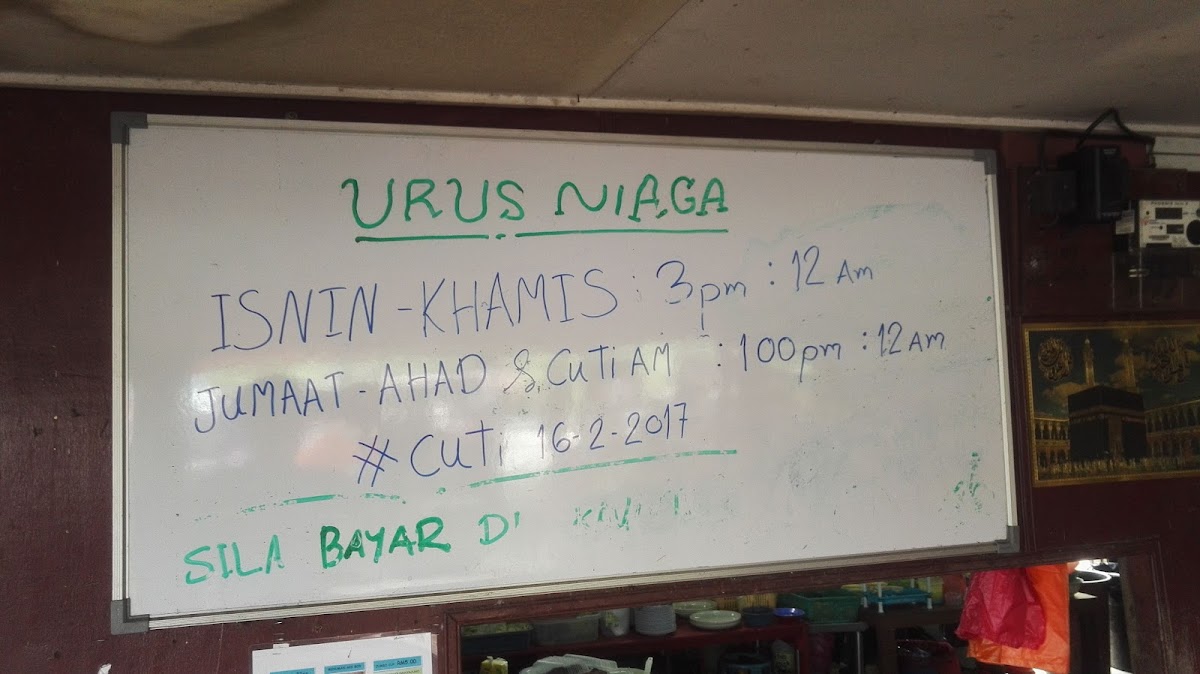 URUS NIAGA
ISNIN - KHAMIS : 3pm : 12 Am
JUMAAT - AHAD & CUTI AM : 100pm : 12 Am
# CUTI 16-2-2017
SILA BAYAR DI